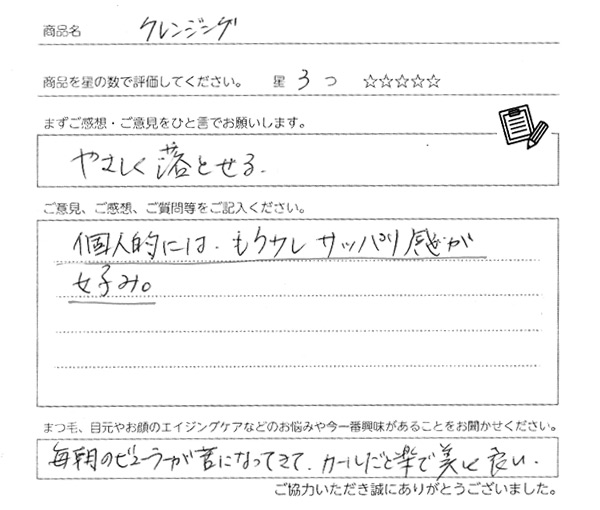 商品名 クレンジング
商品を星の数で評価してください。 星 3 つ ☆☆☆☆☆
まずご感想・ご意見をひと言でお願いします。
やさしく落とせる.
ご意見、ご感想、ご質問等をご記入ください。
個人的には、もう少しサッパリ感が
好み。
まつ毛、目元やお顔のエイジングケアなどのお悩みや今一番興味があることをお聞かせください。
毎朝のビューラーが苦になってきて、カールだと楽で美しく良い.
ご協力いただき誠にありがとうございました。